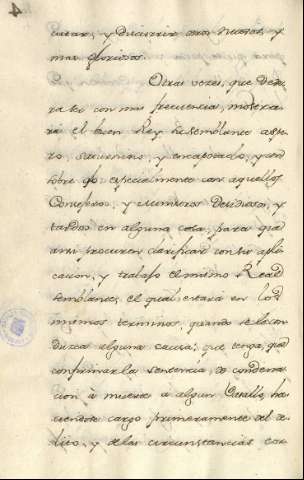 y discurrir otros nuevos, y
mas gloriosos.
Otras veces, que
con mas frecuencia, mostra
rá el buen Rey su semblante aspe
ro, y encapotado, y
especialmente con aquellos
Consejeros, y Ministros Desidiosos, y
tardos en alguna cosa, para que
assi procuren clarificar con su apli
cacion, y trabajo el mismo Real
semblante, el qual estará en los
mismos terminos, quando se le con
duzca alguna causa, que tenga, que
confirmar la sentencia, de condena
cion à muerte à algun Vasallo, ha
ciendose cargo primeramente del de
lito, y de las circunstancias con